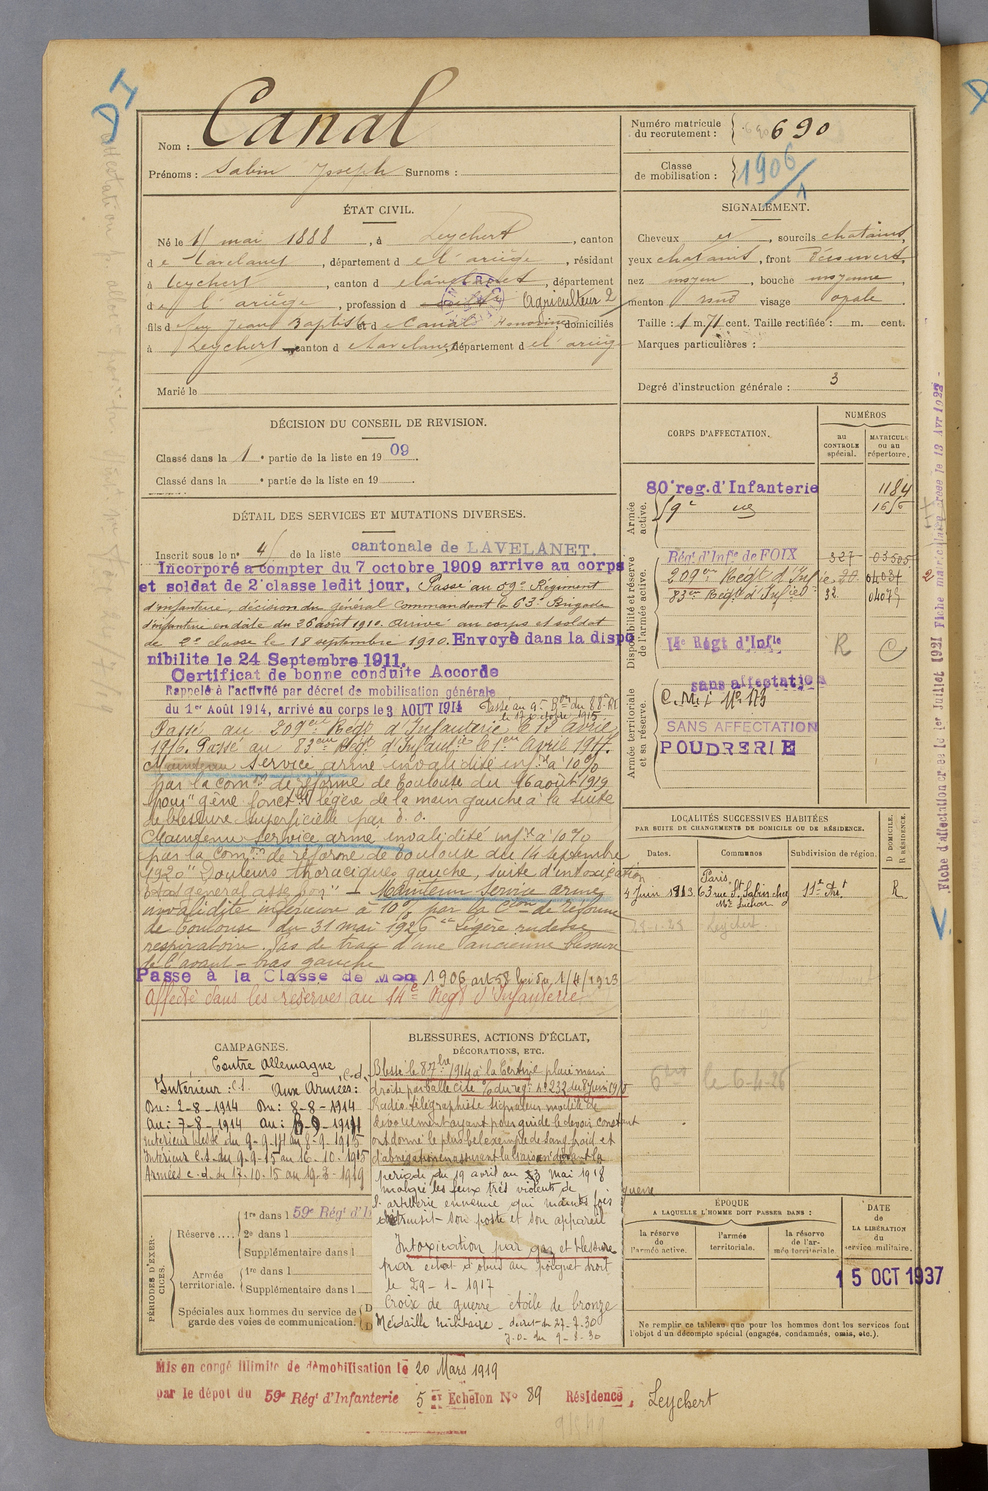 Nom : Canal
Prénoms : Sabin Joseph Surnoms :
Numéro matricule du recrutement : 690
Classe de mobilisation : 1906
ÉTAT CIVIL.
Né le 1 mai 1888, à Leychert, canton
de Lavelanet, département de l'ariège, résidant
à Leychert, canton de Lavelanet, département
de l'ariège, profession d Agriculteur 2
fils de Jean Baptiste et de Canal Honorine, domiciliés
à Leychert, canton de Lavelanet, département de l'ariège
Marié le
SIGNALEMENT.
Cheveux et, sourcils chatains,
yeux chatains, front Découvert,
nez moyen, bouche moyenne,
menton rond visage ovale
Taille : 1 m. 71 cent. Taille rectifiée : m. cent.
Marques particulières :
Degré d'instruction générale : 3
DÉCISION DU CONSEIL DE REVISION.
Classé dans la 1e partie de la liste en 1909
Classé dans la e partie de la liste en 19
DÉTAIL DES SERVICES ET MUTATIONS DIVERSES.
Inscrit sous le n° 4 de la liste cantonale de LAVELANET.
Incorporé à compter du 7 octobre 1909 arrivé au corps
et soldat de 2e classe ledit jour, Passé au 59e Régiment
d'infanterie, décision du général commandant la 63e Brigade
d'infanterie en date du 26 août 1910. arrivé au corps et soldat
de 2e classe le 18 septembre 1910. Envoyé dans la dispo
nibilité le 24 Septembre 1911.
Certificat de bonne conduite Accordé
Rappelé à l'activité par décret de mobilisation générale
du 1er Août 1914, arrivé au corps le 3 AOUT 1914 Passé au 9e Bon du 88e RI
le 17 octobre 1915
Passé au 209eme Régt d'Infanterie le 1er avril
1916. Passé au 83eme Régt d'Infantie le 1er Avril 1917.
Maintenu service armé invalidité infre à 10%
par la comon de réforme de Toulouse du 16 août 1919
pour "gêne fonctlle légère de la main gauche à la suite
de blessure superficielle par é. o.
Maintenu service armé invalidité infre à 10%
par la comon de réforme de Toulouse du 14 septembre
1920 "Douleurs thoraciques gauche, suite d'intoxication
Etat général assez bon" - Maintenu service armé
invalidité inférieure à 10% par la Con de réforme
de Toulouse du 31 mai 1926 "Légère rudesse
respiratoire. Pas de trace d'une ancienne blessure
de l'avant-bras gauche
Passé à la Classe de Mon 1906 art 58 loi du 1/4/1923
Affecté dans les réserves au 14e Régt d'Infanterie
CORPS D'AFFECTATION.
NUMÉROS
au CONTROLE spécial.
MATRICULE ou au répertoire.
Armée active.
80e reg. d'Infanterie 1184
59e
Disponibilité et réserve de l'armée active.
Régt d'Infie de FOIX 327 03505
209eme Régt d'Infie
83eme Régt d'Infie 32
14e Régt d'Infie R
Armée territoriale et sa réserve.
sans affectation
C.M.I. N° 173
SANS AFFECTATION
POUDRERIE
LOCALITÉS SUCCESSIVES HABITÉES
PAR SUITE DE CHANGEMENTS DE DOMICILE OU DE RÉSIDENCE.
Dates. Communes Subdivision de région. D DOMICILE. R RÉSIDENCE.
4 Juin 1913. Paris, 63 rue St Sabin chez Me Luchon 11e Art R
Leychert
le 6-4-26
CAMPAGNES.
Contre Allemagne
Intérieur : C.S. Aux Armées : C.d.
Du : 2-8-1914 Du : 8-8-1914
Au : 7-8-1914 au : 8-9-1914
Intérieur blessé du 9-9-14 au 8-9-1915
Intérieur C.S. du 9-9-15 au 16-10-1915
Armées c.d. du 17.10.15 au 19-3-1919
BLESSURES, ACTIONS D'ÉCLAT,
DÉCORATIONS, ETC.
Blessé le 8 7bre 1914 à la Certine plaie main
droite par balle Cité O/ du régt n° 232 du 8 Juin 1918
Radio télégraphiste signaleur modèle de
dévouement ayant pour guide le devoir constant
ont donné le plus bel exemple de sang froid et
d'abnégation en assurant la liaison durant la
période du 19 avril au 23 mai 1918
malgré les feux très violents de
l'artillerie ennemie qui maintes fois
détruisit son poste et son appareil
Intoxication par gaz et blessure
par éclat d'obus au poignet droit
le 29-1-1917
Croix de guerre étoile de bronze
Médaille militaire - décret du 27-7-30
J.O. du 9-8-30
PÉRIODES D'EXERCICES.
Réserve
1re dans l 59e Régt d'I
2e dans l
Supplémentaire dans l
Armée territoriale.
1re dans l
Supplémentaire dans l
Spéciales aux hommes du service de garde des voies de communication.
ÉPOQUE
A LAQUELLE L'HOMME DOIT PASSER DANS :
la réserve de l'armée active.
l'armée territoriale.
la réserve de l'armée territoriale.
DATE de LA LIBÉRATION du service militaire.
15 OCT 1937
Ne remplir ce tableau que pour les hommes dont les services font
l'objet d'un décompte spécial (engagés, condamnés, omis, etc.).
Mis en congé illimité de démobilisation le 20 Mars 1919
par le dépôt du 59e Régt d'Infanterie 5e Echelon N° 89 Résidence, Leychert
Fiche d'affectation créée le 1er Juillet 1921